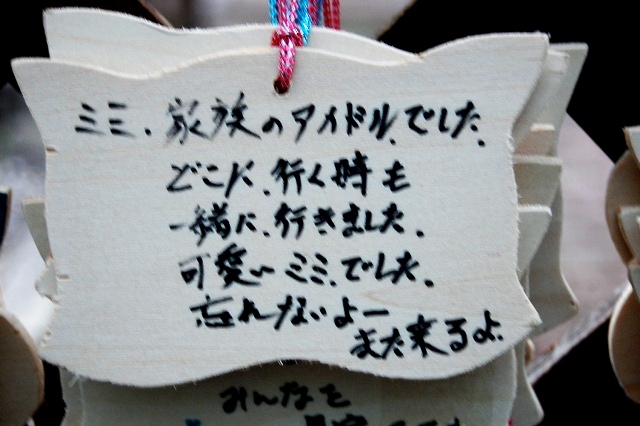 ミミ、家族のアイドル、でした、
どこに、行く時も
一緒に、行きました、
可愛いミミ、でした、
忘れないよー
また来るよ、
みんなを